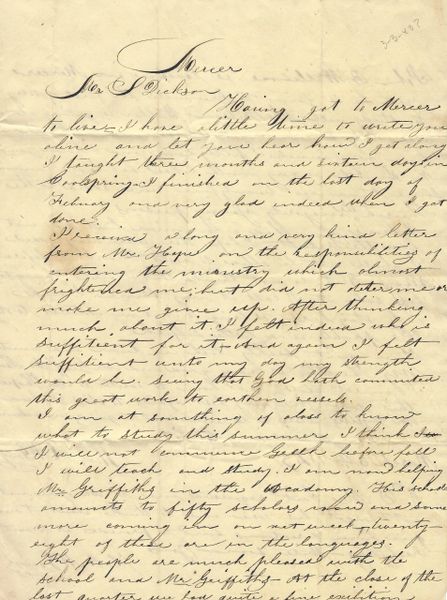 3-3-1837
Mercer
Mr S Dickson
Having got to Mercer
to live I have a little time to write you a
line and let you hear how I get along
I taught three months and sixteen days in
Coolspring I finished on the last day of
Februay and very glad indeed when I got
done.
I received a long and very kind letter
from Mr. Hope on the responsibilities of
entering the ministry which almost
frightened me; but did not determe or
make me give up. After thinking
much about it. I felt indeed who is
suffitient for it, And again I felt
suffitient unto my day my strength
would be. seeing that God hath commited
this great work to earthen vessels.
I am at something of a loss to know
what to study this summer I think I
I will not commence before fall
I will teach and study. I am now helping
Mr. Griffiths in the academy. His school
amounts to fifty scholars now and some
more coming in on next week, twenty
eight of these are in the languages.
The people are much pleased with the
school and Mr Griffiths- At the close of the
last quarter we had quite a fine exibition